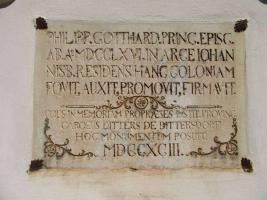 PHILIPP. GOTTHARD. PRINC. EPISC.
ABA° MDCCLXVI. IN ARCE IOHAN
NISB. RESIDENS HANC COLONIAM
FOVIT, AUXIT, PROMOVIT, FIRMAVIT.
CUIUS IN MEMORIAM
CAROLUS DITTERS DE DITTERSDORF
HOC MONUMENTUM POSUIT
MDCCXCIII.